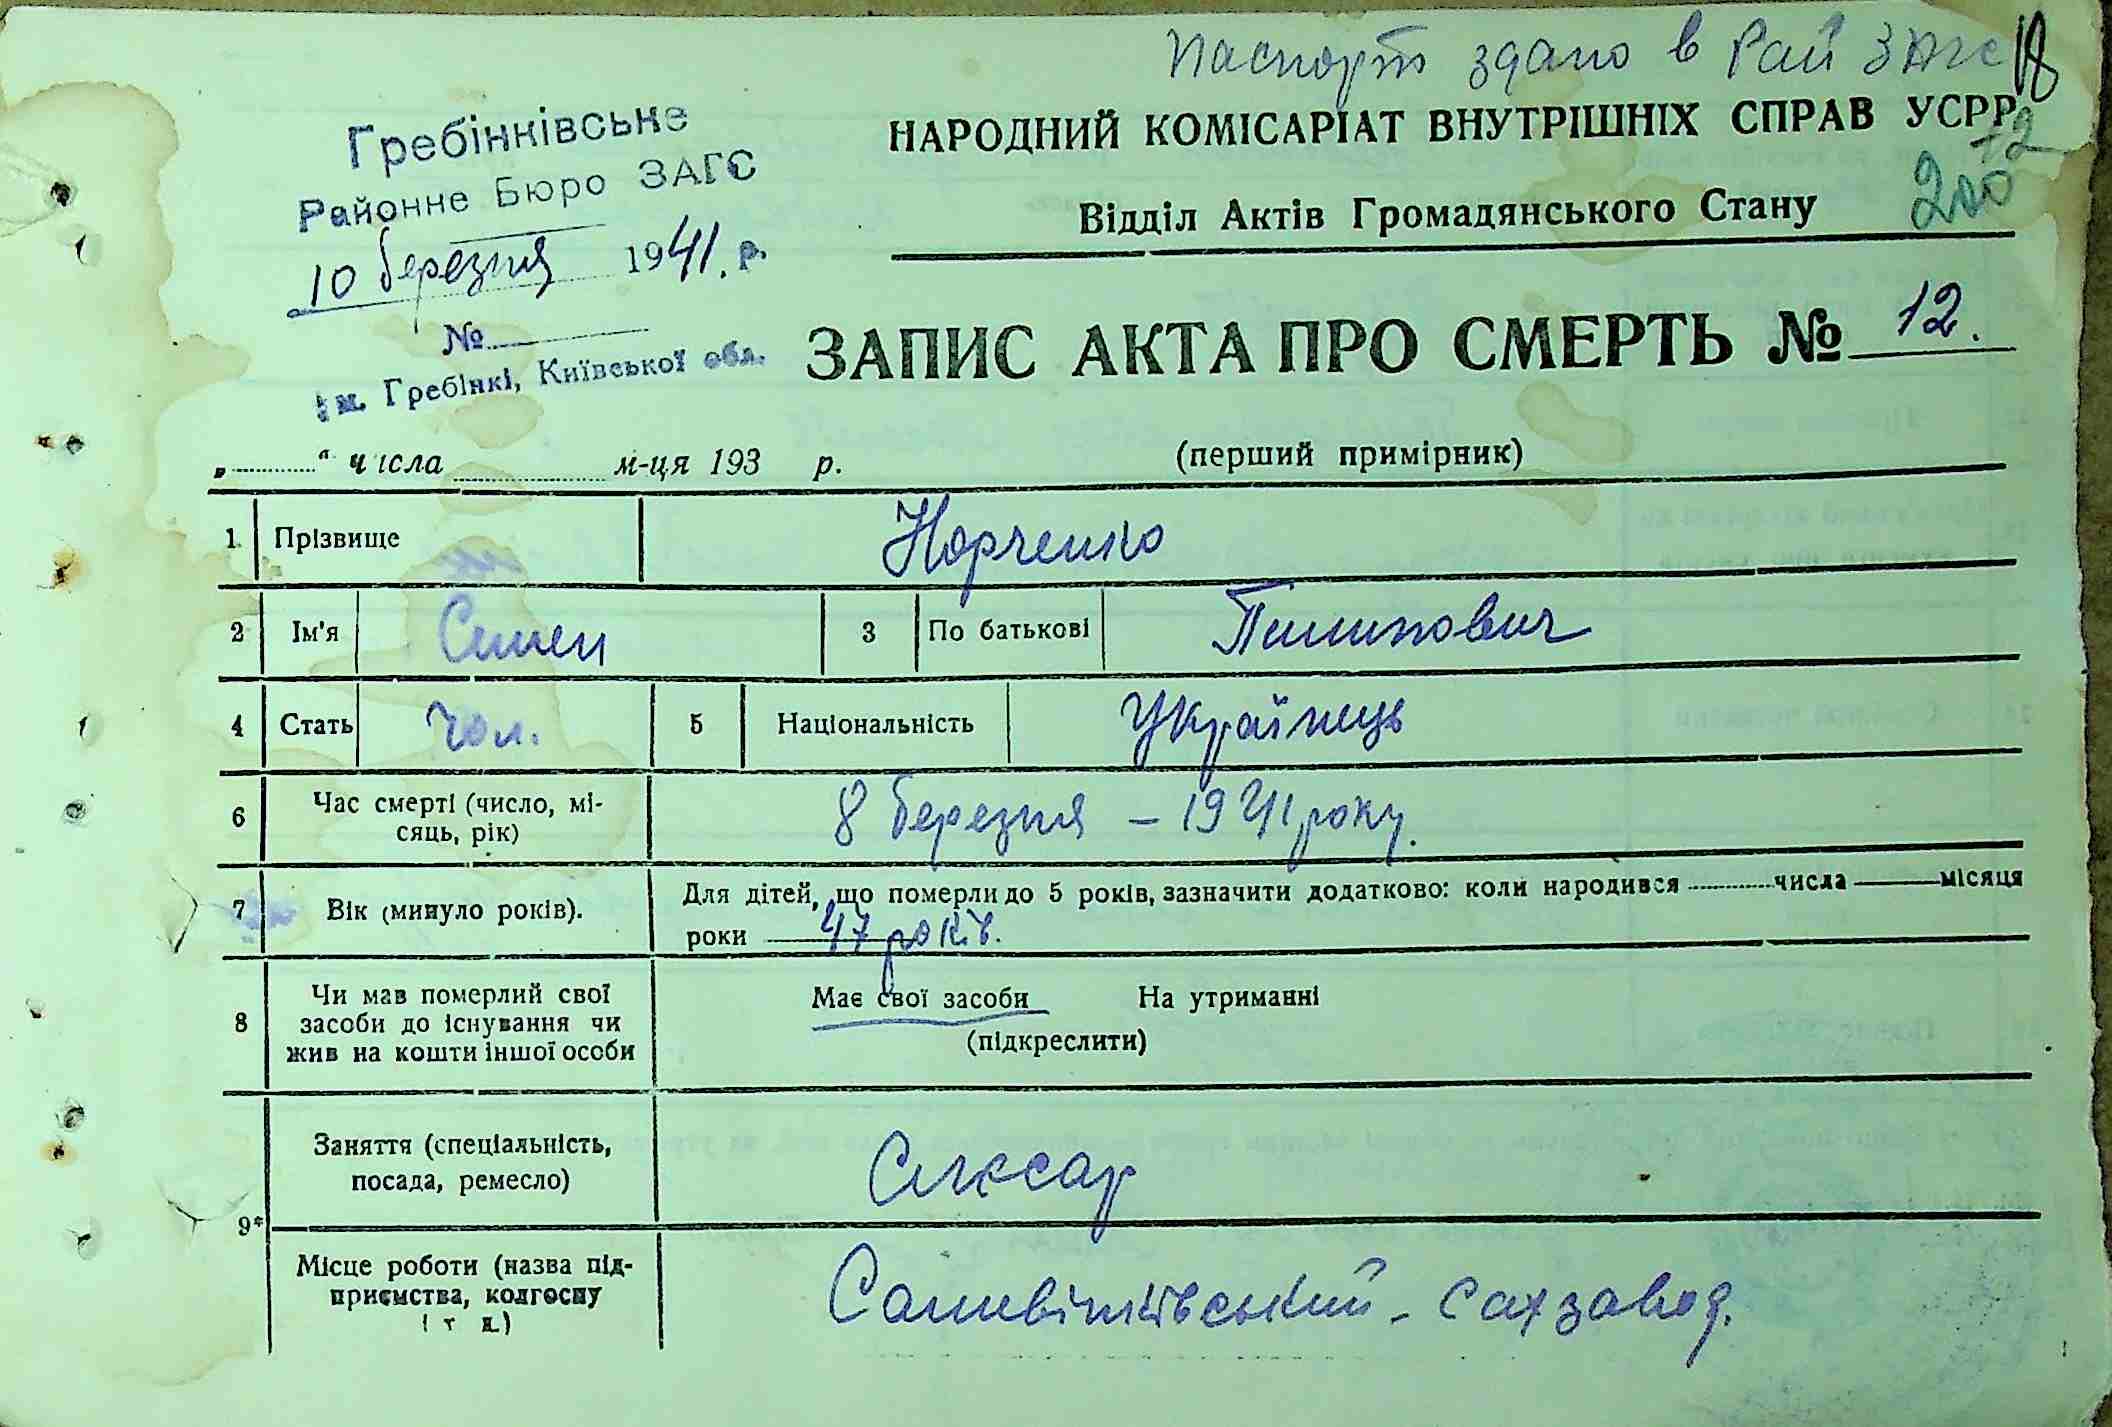 Паспорт здано в Рай ЗАГС
18
Гребінківське
Районне Бюро ЗАГС
10 березня 1941. р.
№
м. Гребінкі, Київської обл.
НАРОДНИЙ КОМІСАРІАТ ВНУТРІШНІХ СПРАВ УСРР
12
200
Відділ Актів Громадянського Стану
ЗАПИС АКТА ПРО СМЕРТЬ № 12.
„ “ числа м-ця 193 р. (перший примірник)
1. Прізвище Норченко
2 Ім'я Семен 3 По батькові Пилипович
4 Стать Чол. 5 Національність Українець
6 Час смерті (число, мі-
сяць, рік) 8 березня – 1941 року.
7 Вік (минуло років). Для дітей, що померли до 5 років, зазначити додатково: коли народився числа місяця
роки 47 років.
8 Чи мав померлий свої
засоби до існування чи
жив на кошти іншої особи
Має свої засоби На утриманні
(підкреслити)
9* Заняття (спеціальність,
посада, ремесло) Слюсар
Місце роботи (назва під-
приємства, колгоспу
і т д.) Саливінківський - сахзавод.